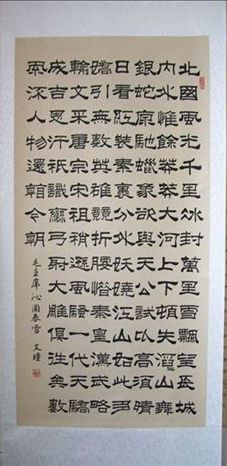 北國風光千里冰封萬里雪飄望長城
內外惟餘莽莽大河上下頓失滔滔山舞
銀蛇原馳蠟象欲與天公試比高須晴
日看紅裝素裹分外妖嬈江山如此多
嬌引無數英雄競折腰惜秦皇漢武略
輸文采唐宗宋祖稍遜風騷一代天驕
成吉思汗祇識彎弓射大雕俱往矣數
風流人物還看今朝
毛主席沁園春雪 文